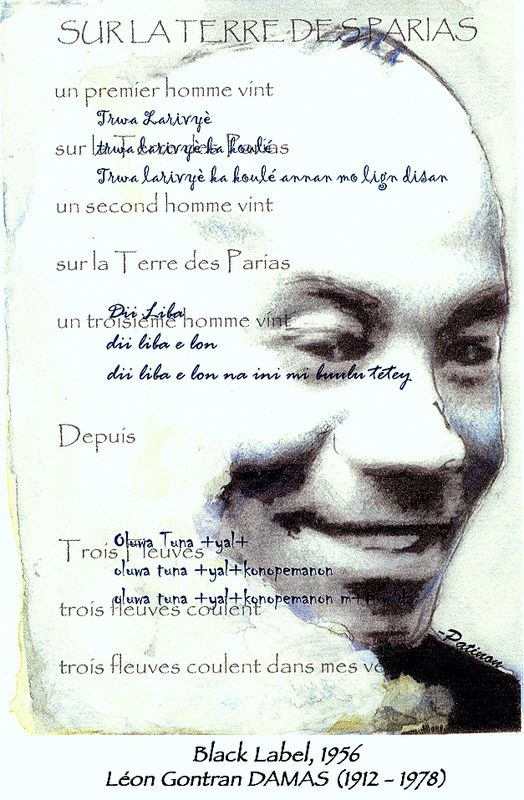 SUR LA TERRE DES PARIAS
un premier homme vint
Trwa Larivyè
sur la Terre des Parias
trwa larivyè ka koulé
Trwa larivyè ka koulé annan mo lign disan
un second homme vint
sur la Terre des Parias
Dii Liba
un troisième homme vint
dii liba e lon
dii liba e lon na ini mi buulu tetey
Depuis
Oluwa Tuna +yal+
Trois Fleuves
oluwa tuna +yal+konopemanon
oluwa tuna +yal+konopemanon
trois fleuves coulent
trois fleuves coulent dans mes
-Patinon
Black Label, 1956
Léon Gontran DAMAS (1912 - 1978)